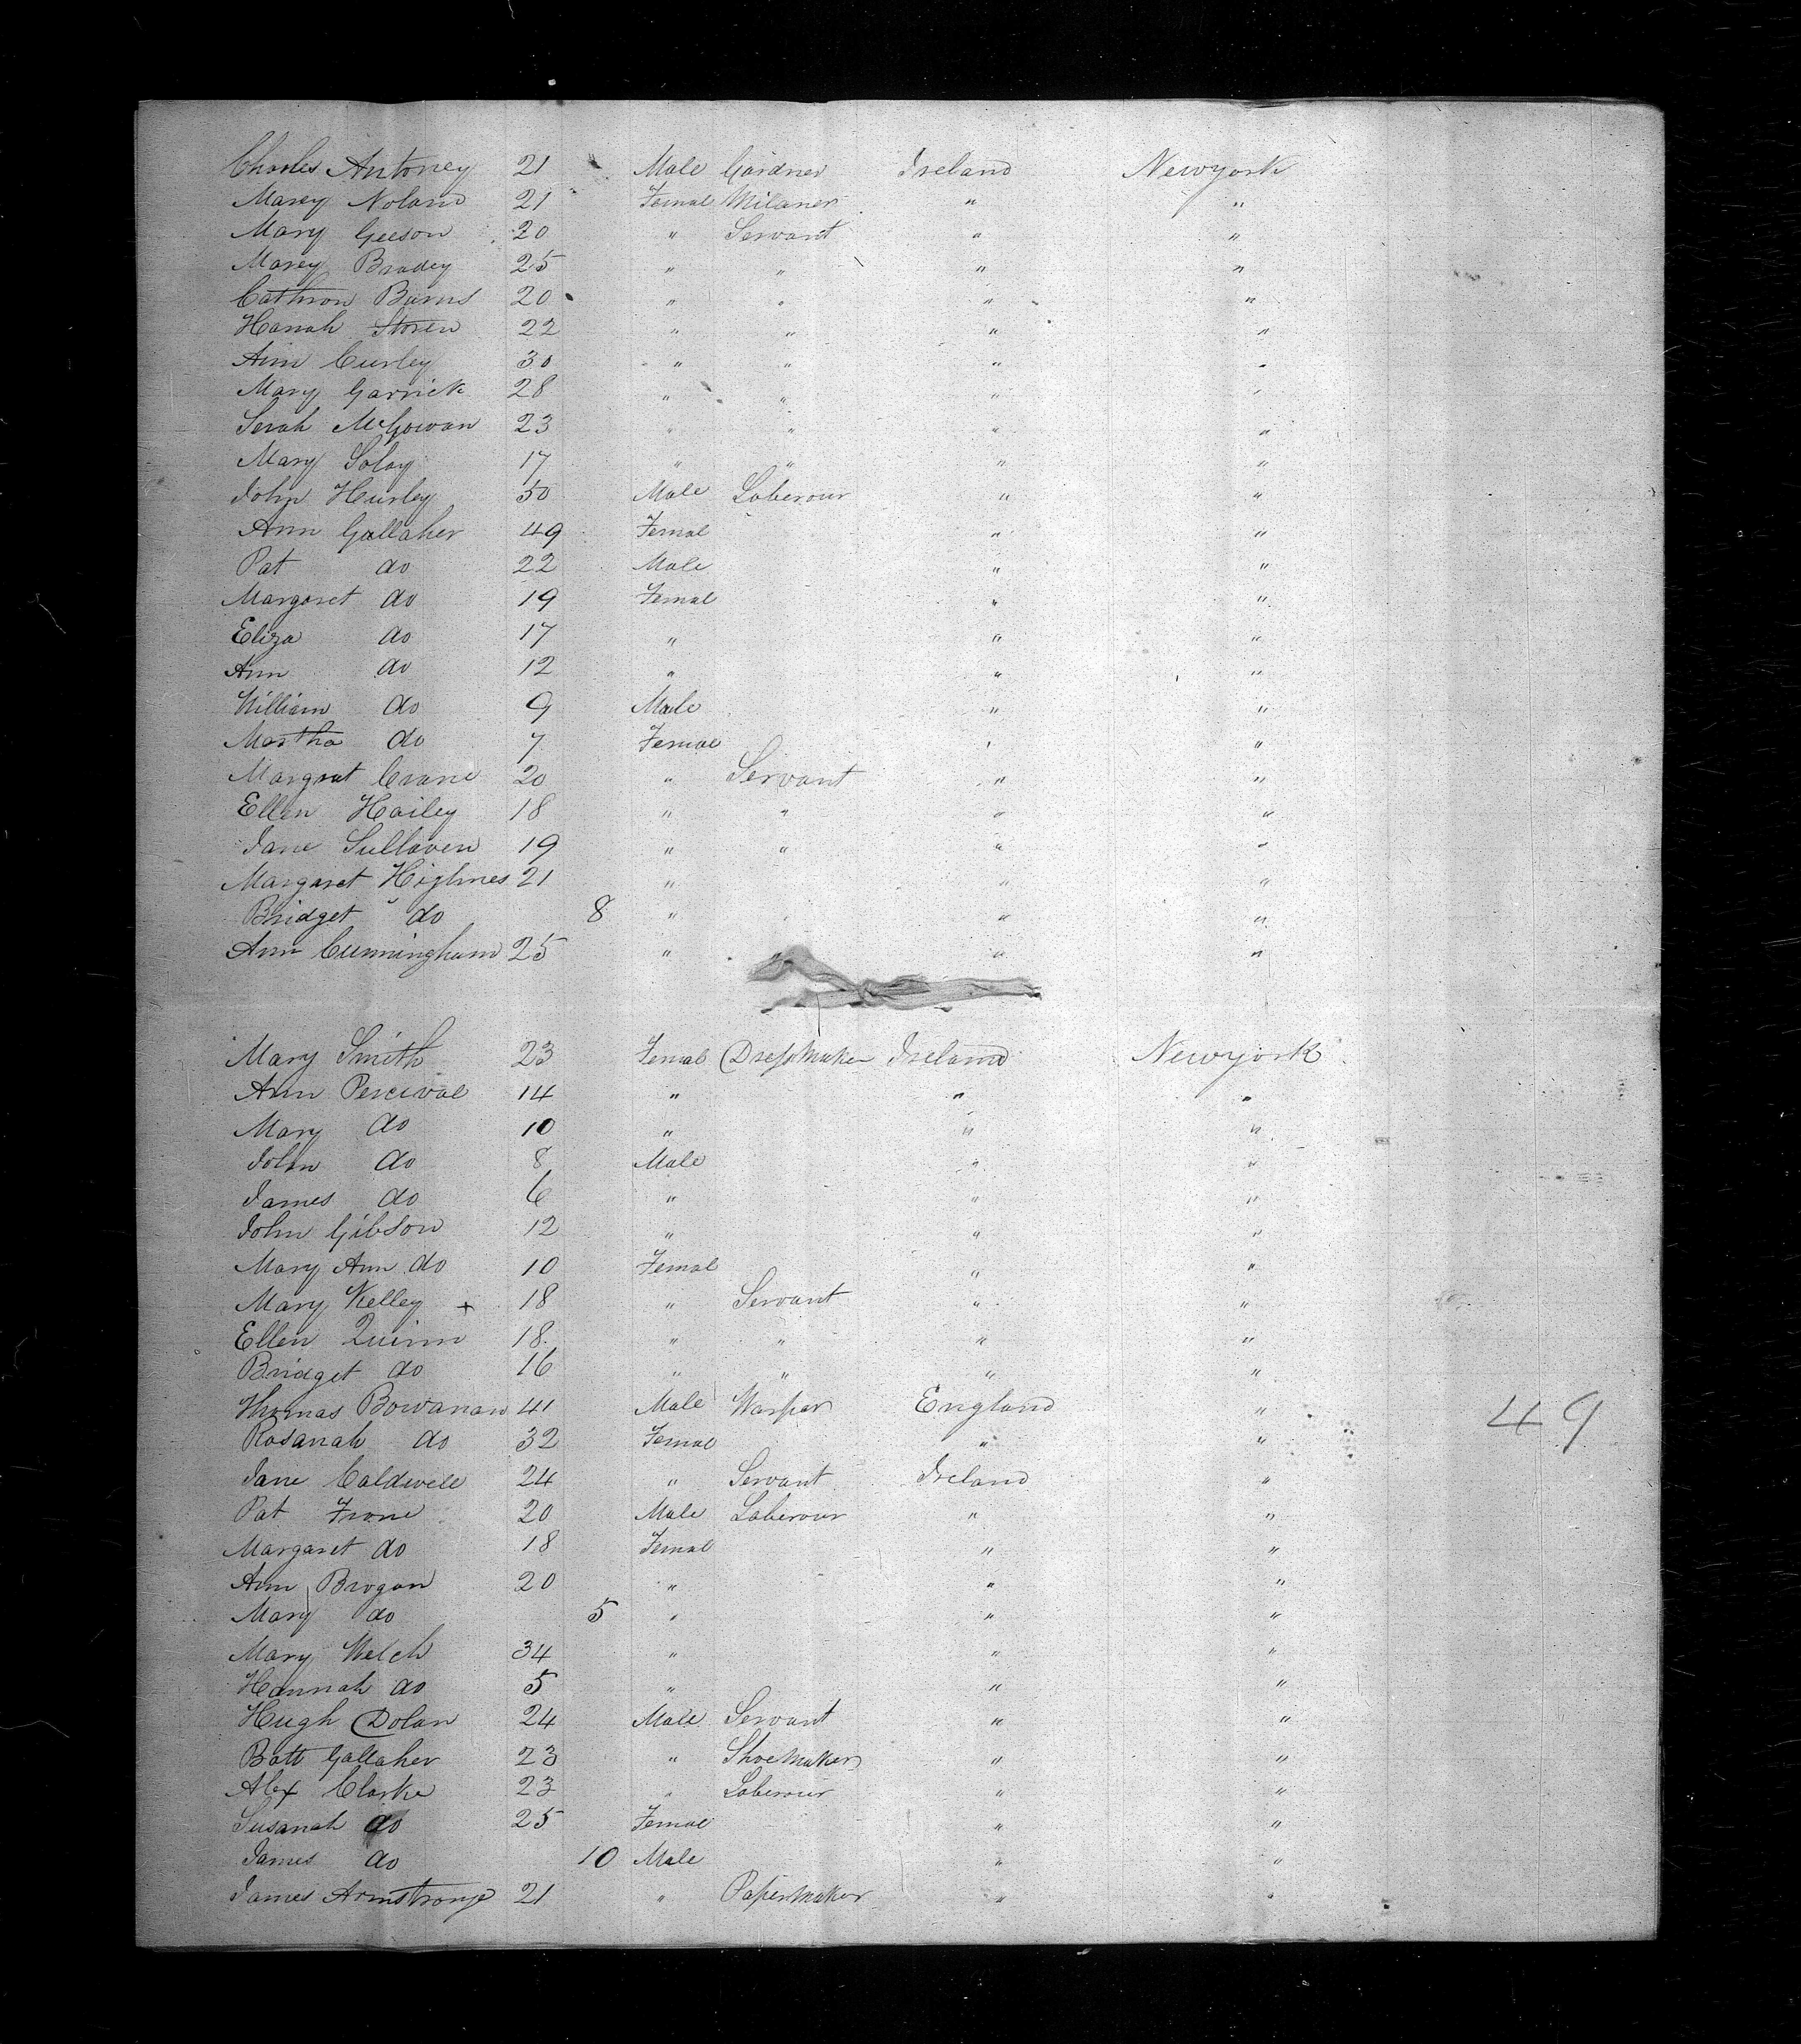 Charles Antoney 21 Male Gardner Ireland Newyork
Marey Noland 21 Femal Milaner " "
Mary Geeson 20 " Servant " "
Marey Bradey 25 " " " "
Cathron Burns 20 " " " "
Hanah Storen 22 " " " "
Ann Curley 30 " " " "
Mary Garrick 28 " " " "
Serah McGowan 23 " " " "
Mary Solay 17 " " " "
John Hurley 50 Male Laberour " "
Ann Gallaher 49 Femal " "
Pat do 22 Male " "
Margaret do 19 Femal " "
Eliza do 17 " " "
Ann do 12 " " "
William do 9 Male " "
Martha do 7 Femal " "
Margrat Crane 20 " Servant " "
Ellen Hailey 18 " " " "
Jane Sullaven 19 " " " "
Margaret Highnes 21 " " "
Bridget do 8 " " " "
Ann Cunningham 25 " " " "
Mary Smith 23 Femal Dressmaker Ireland Newyork
Ann Percival 14 " " "
Mary do 10 " " "
John do 8 Male " "
James do 6 " " "
John Gibson 12 " " "
Mary Ann do 10 Femal " "
Mary Kelley + 18 " Servant " "
Ellen Quinn 18 " " " "
Bridget do 16 " " " "
Thomas Bowanan 41 Male Warper England " 49
Rosanah do 32 Femal " "
Jane Caldwell 24 " Servant Ireland "
Pat Frone 20 Male Laberour " "
Margaret do 18 Femal " "
Ann Brogan 20 " " "
Mary do 5 " " "
Mary Welch 34 " " "
Hannah do 5 " " "
Hugh Dolan 24 Male Servant " "
Batt Gallaher 23 " Shoemaker " "
Alex Clarke 23 " Laberour " "
Susanah do 25 Femal " "
James do 10 Male " "
James Armstrong 21 " Papermaker " "